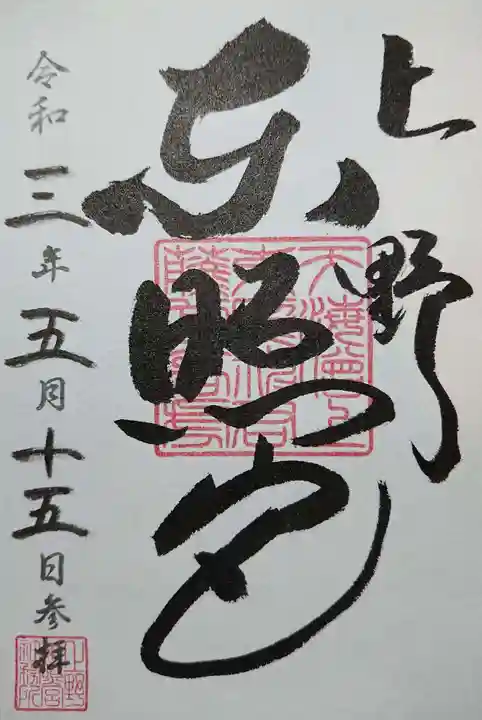 上野
東照宮
令和三年五月十五日参拝